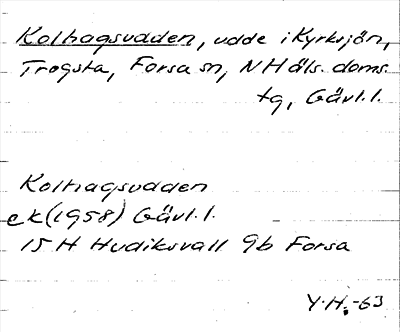 Kolhagsudden, udde i Kyrksjön,
Trogsta, Forsa sn, N Häls. doms.
tg, Gävl.l.
Kolhagsudden
ek (1958) Gävl.l.
15 H Hudiksvall 9b Forsa
Y.H.-63